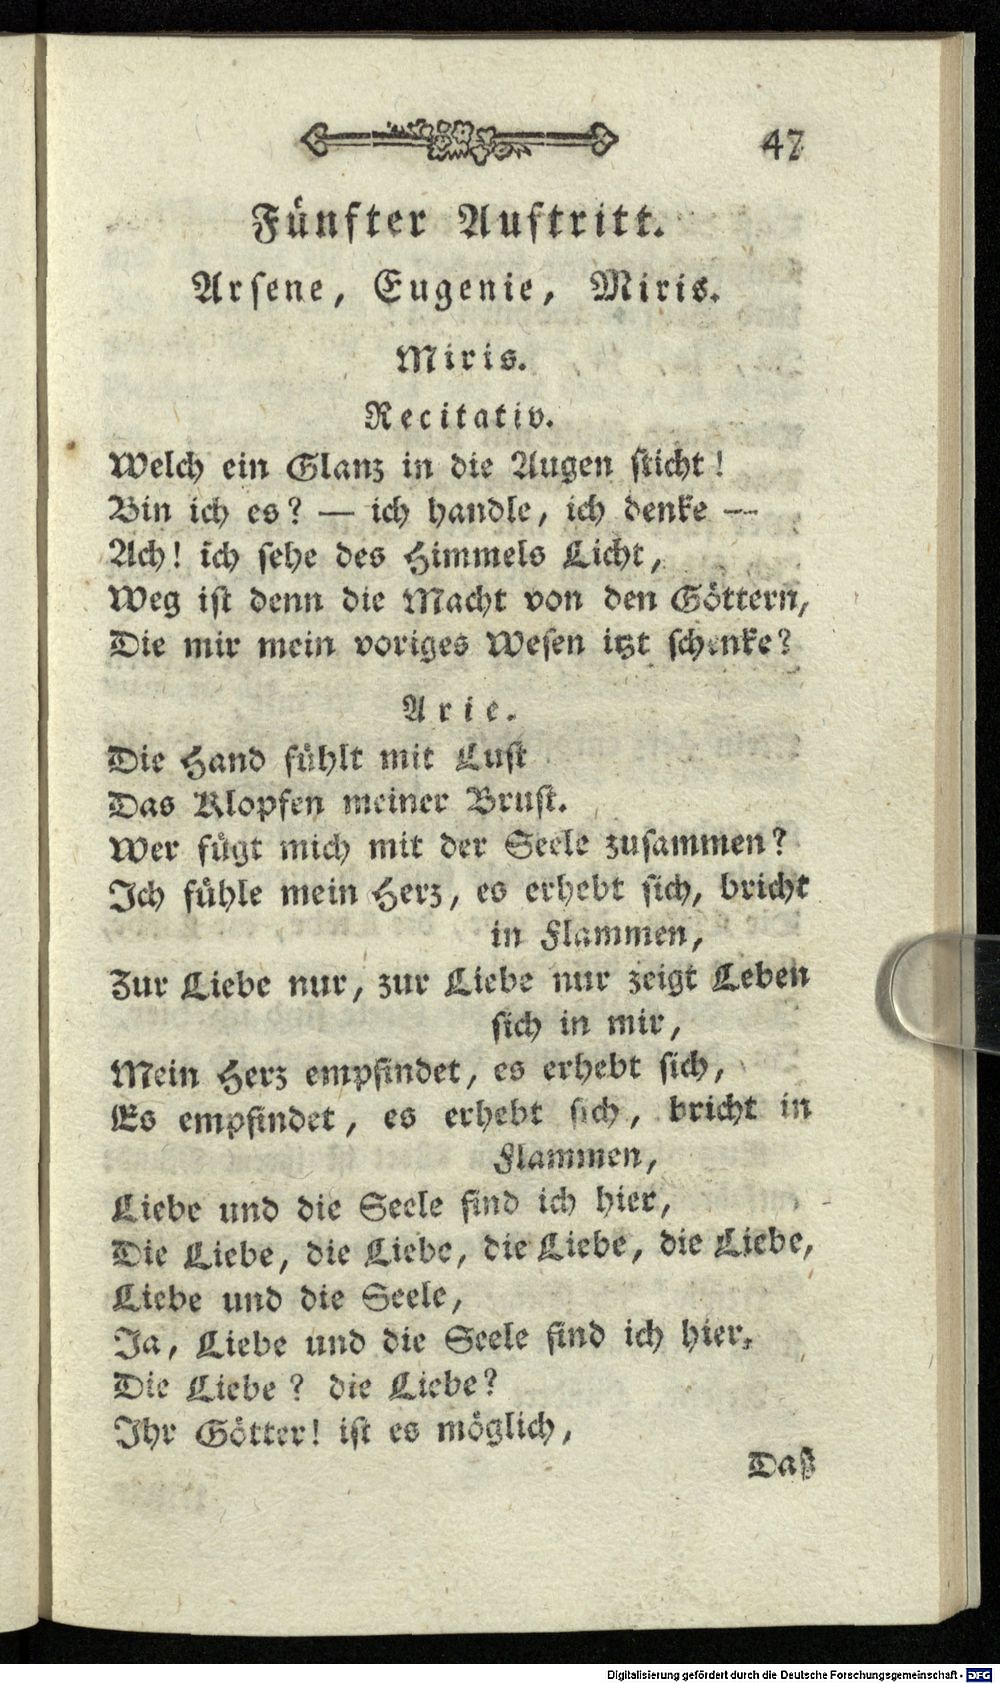 47
Fünfter Auftritt.
Arsene, Eugenie, Miris.
Miris.
Recitativ.
Welch ein Glanz in die Augen sticht!
Bin ich es? — ich handle, ich denke —
Ach! ich sehe des Himmels Licht,
Weg ist denn die Macht von den Göttern,
Die mir mein voriges Wesen itzt schenke?
Arie.
Die Hand fühlt mit Lust
Das Klopfen meiner Brust.
Wer fügt mich mit der Seele zusammen?
Ich fühle mein Herz, es erhebt sich, bricht
in Flammen,
Zur Liebe nur, zur Liebe nur zeigt Leben
sich in mir,
Mein Herz empfindet, es erhebt sich,
Es empfindet, es erhebt sich, bricht in
Flammen,
Liebe und die Seele find ich hier,
Die Liebe, die Liebe, die Liebe, die Liebe,
Liebe und die Seele,
Ja, Liebe und die Seele find ich hier,
Die Liebe? die Liebe?
Ihr Götter! ist es möglich,
Daß
Digitalisierung gefördert durch die Deutsche Forschungsgemeinschaft - DFG